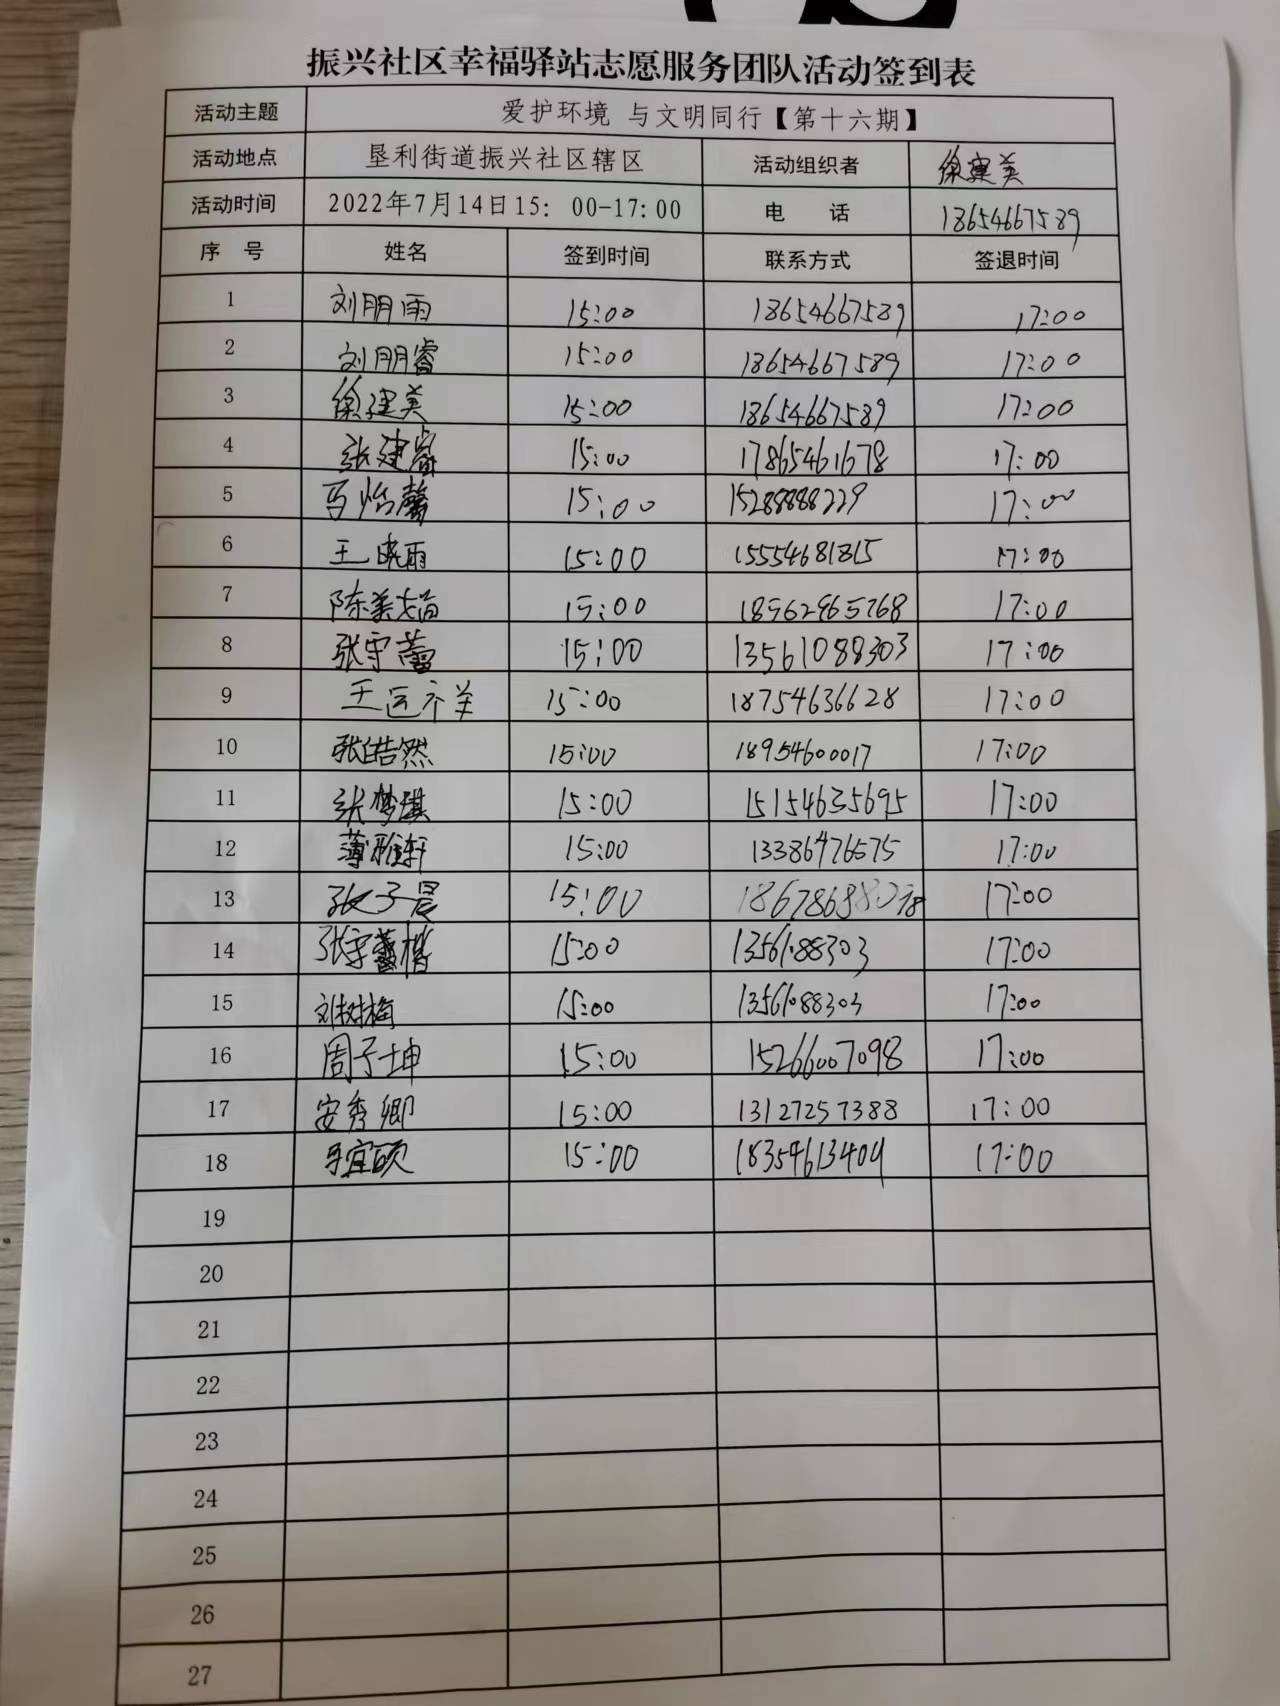 振兴社区幸福驿站志愿服务团队活动签到表
活动主题 爱护环境 与文明同行【第十六期】
活动地点 垦利街道振兴社区辖区 活动组织者 徐建美
活动时间 2022年7月14日15：00-17:00 电 话 18654667589
序 号 姓名 签到时间 联系方式 签退时间
1 刘朋雨 15:00 18654667589 17:00
2 刘朋睿 15:00 18654667589 17:00
3 徐建美 15:00 18654667589 17:00
4 张建睿 15:00 17865461678 17:00
5 马怡馨 15:00 15288888229 17:00
6 王晓雨 15:00 15554681815 17:00
7 陈美 15:00 18562965768 17:00
8 张宇蕾 15:00 13561088303 17:00
9 王运祥 15:00 18754636628 17:00
10 张皓然 15:00 18954600017 17:00
11 张梦琪 15:00 15154635695 17:00
12 薄雅轩 15:00 13386476575 17:00
13 张子晨 15:00 17:00
14 15:00 1356188303 17:00
15 刘树梅 15:00 1356188303 17:00
16 周子坤 15:00 15266007098 17:00
17 安秀卿 15:00 13127257388 17:00
18 15:00 18354613404 17:00
19
20
21
22
23
24
25
26
27